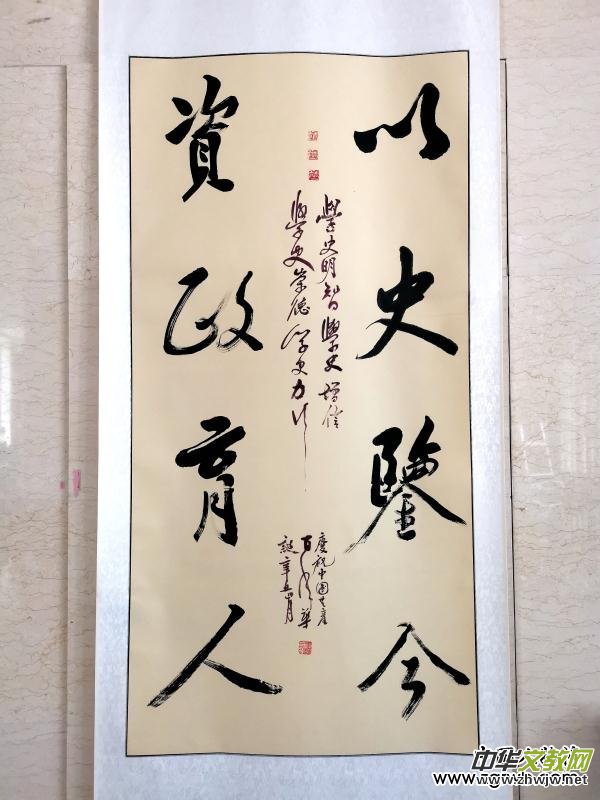 以史鑒今
學史明智學史增信
學史崇德学史力行
慶祝中國共產
百年華
誕辛丑月
資政育人
中华文教网